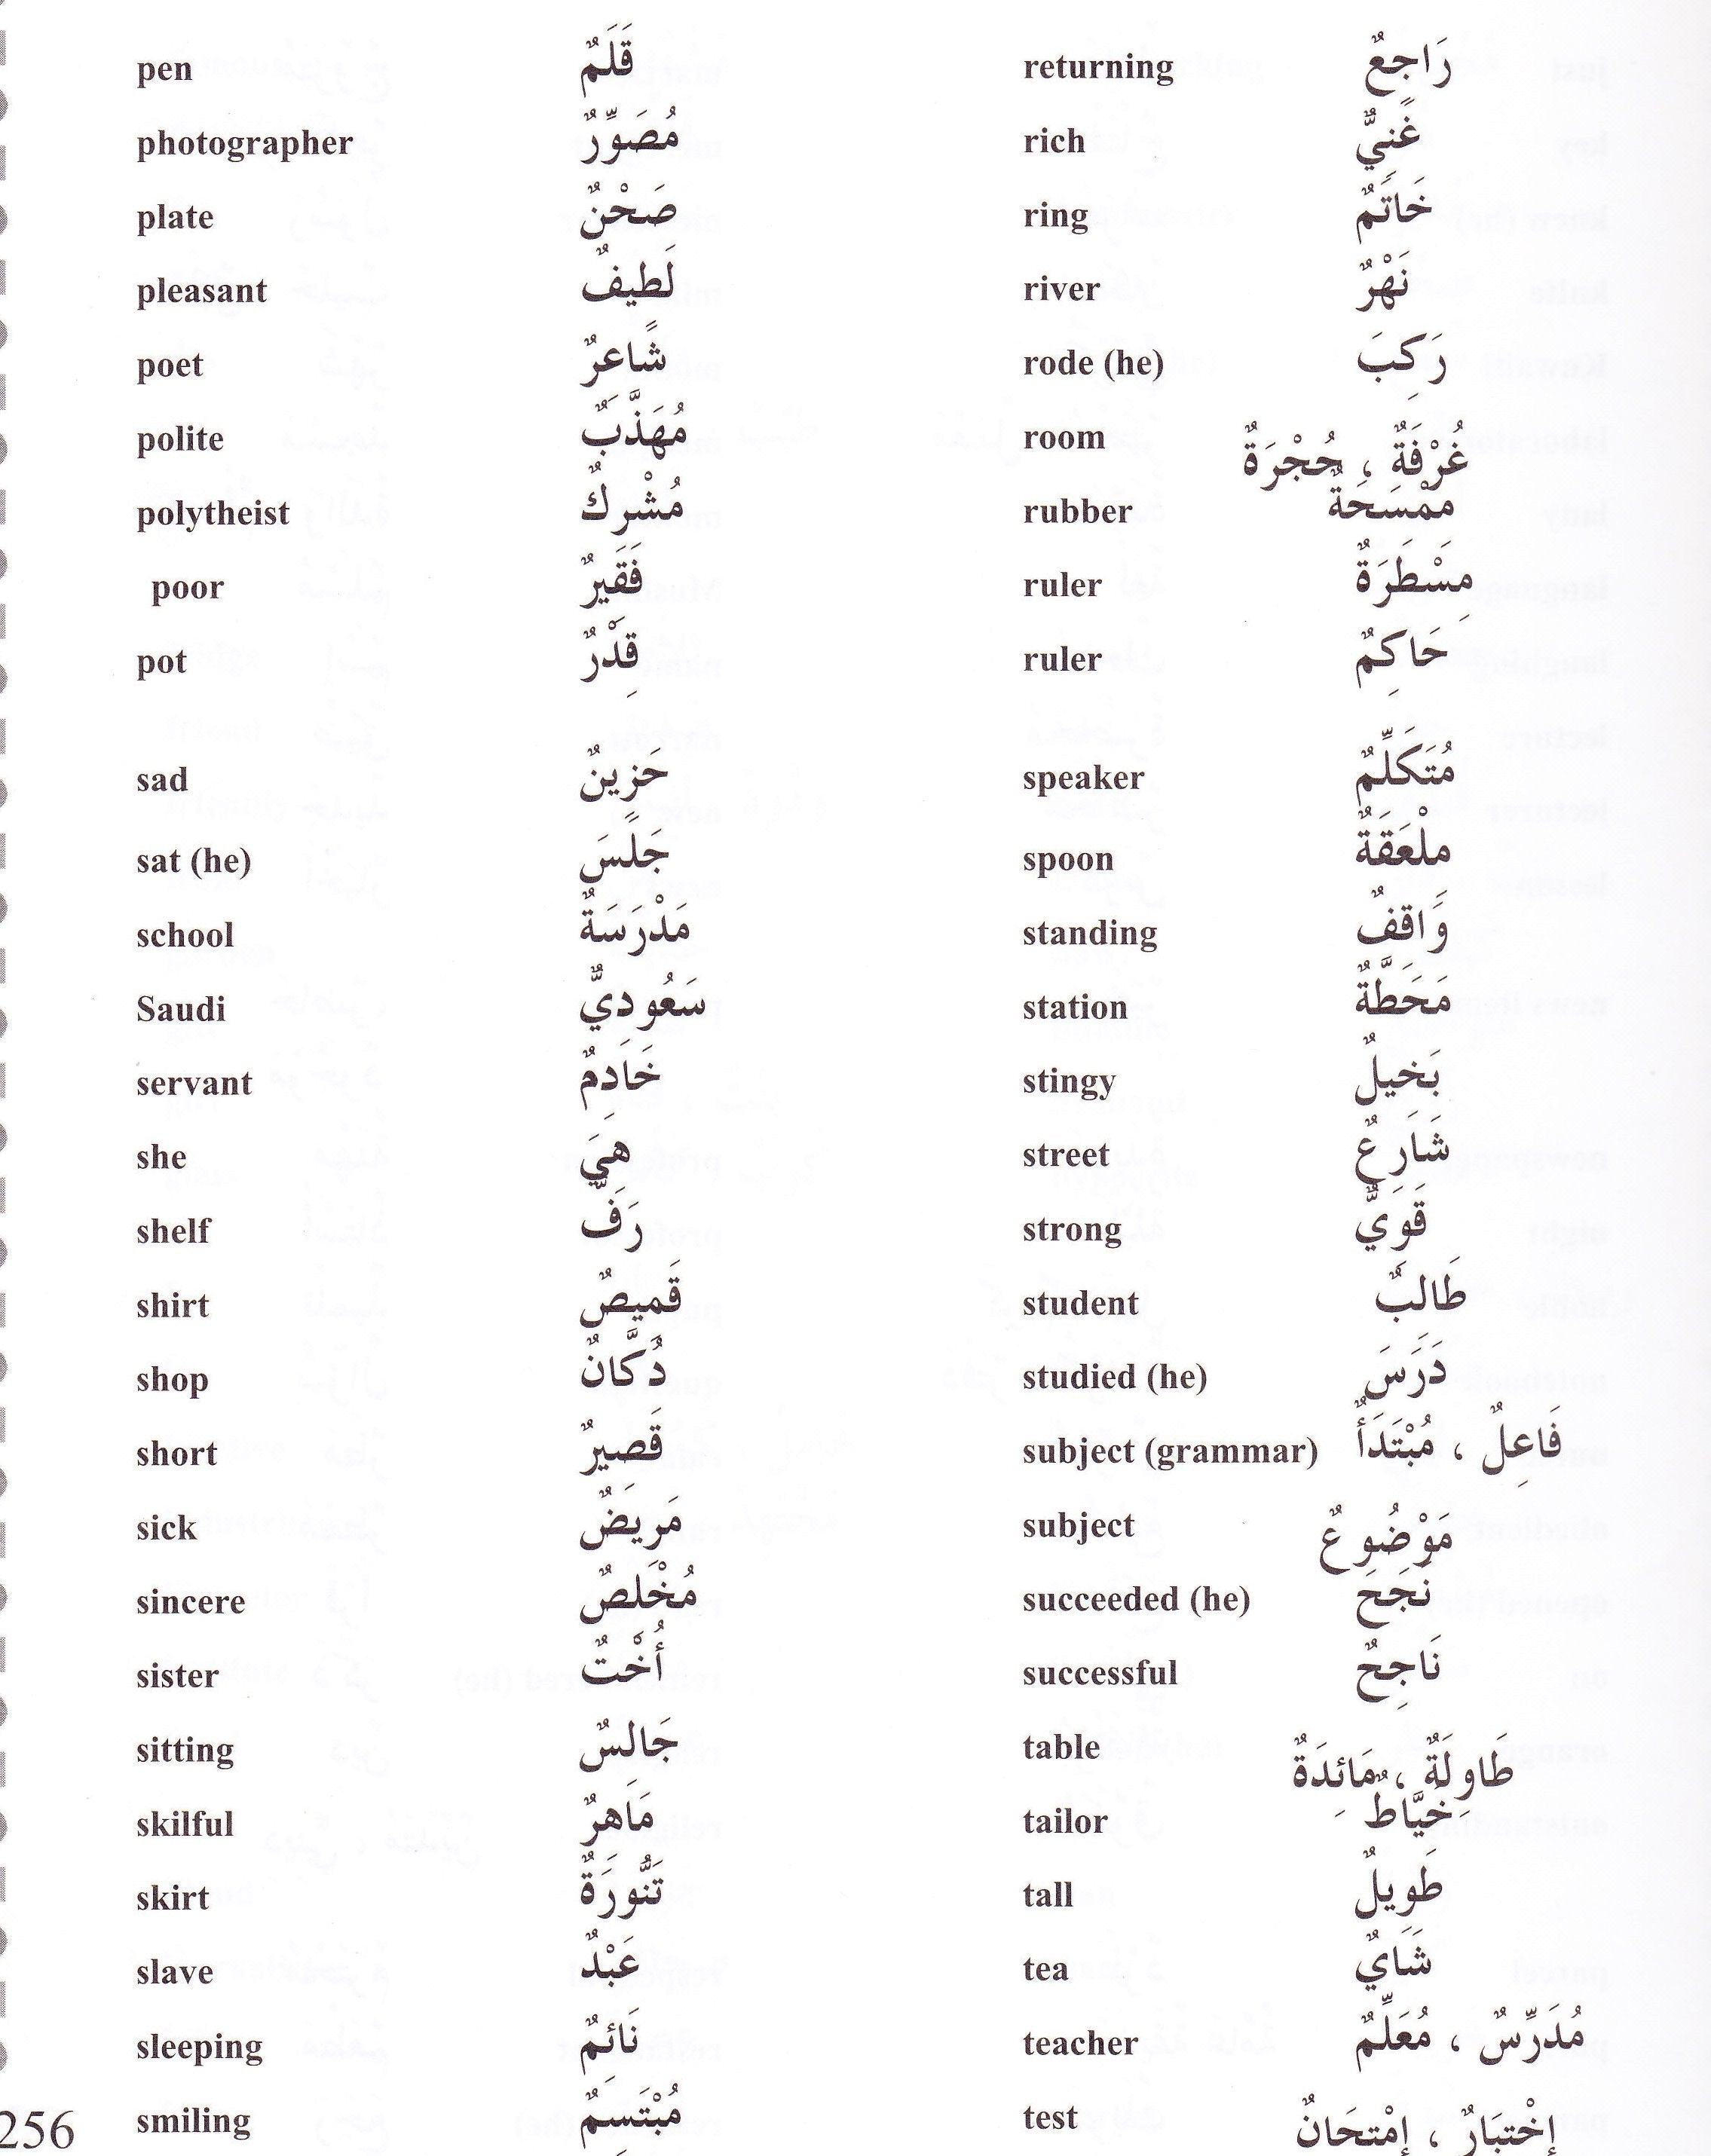 pen قَلَمٌ
photographer مُصَوِّرٌ
plate صَحْنٌ
pleasant لَطِيفٌ
poet شَاعِرٌ
polite مُهَذَّبٌ
polytheist مُشْرِكٌ
poor فَقِيرٌ
pot قِدْرٌ
sad حَزِينٌ
sat (he) جَلَسَ
school مَدْرَسَةٌ
Saudi سَعُودِيٌّ
servant خَادِمٌ
she هِيَ
shelf رَفٌّ
shirt قَمِيصٌ
shop دُكَّانٌ
short قَصِيرٌ
sick مَرِيضٌ
sincere مُخْلِصٌ
sister أُخْتٌ
sitting جَالِسٌ
skilful مَاهِرٌ
skirt تَنُّورَةٌ
slave عَبْدٌ
sleeping نَائِمٌ
smiling مُبْتَسِمٌ
returning رَاجِعٌ
rich غَنِيٌّ
ring خَاتَمٌ
river نَهْرٌ
rode (he) رَكِبَ
room غُرْفَةٌ ، حُجْرَةٌ
rubber مِمْسَحَةٌ
ruler مِسْطَرَةٌ
ruler حَاكِمٌ
speaker مُتَكَلِّمٌ
spoon مِلْعَقَةٌ
standing وَاقِفٌ
station مَحَطَّةٌ
stingy بَخِيلٌ
street شَارِعٌ
strong قَوِيٌّ
student طَالِبٌ
studied (he) دَرَسَ
subject (grammar) فَاعِلٌ ، مُبْتَدَأٌ
subject مَوْضُوعٌ
succeeded (he) نَجَحَ
successful نَاجِحٌ
table طَاوِلَةٌ ، مَائِدَةٌ
tailor خَيَّاطٌ
tall طَوِيلٌ
tea شَايٌ
teacher مُدَرِّسٌ ، مُعَلِّمٌ
test إِخْتِبَارٌ ، إِمْتِحَانٌ
256